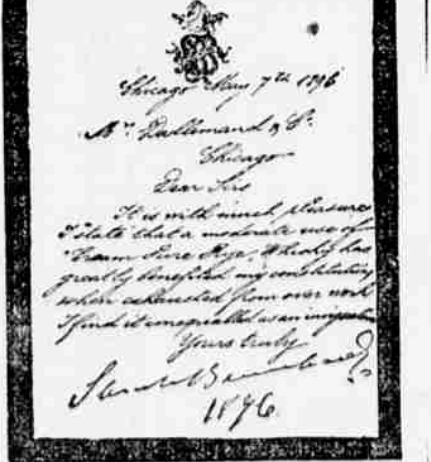 Chicago May 7th 1896
Mr. Dallemand & Co.
Chicago
Dear Sirs
It is with much pleasure
I state that a moderate use of
Cream Pure Rye, Whisky has
greatly benefited my constitution
when exhausted from over work
I find it unequalled as an
Yours truly
Sarah Bernhardt
1896